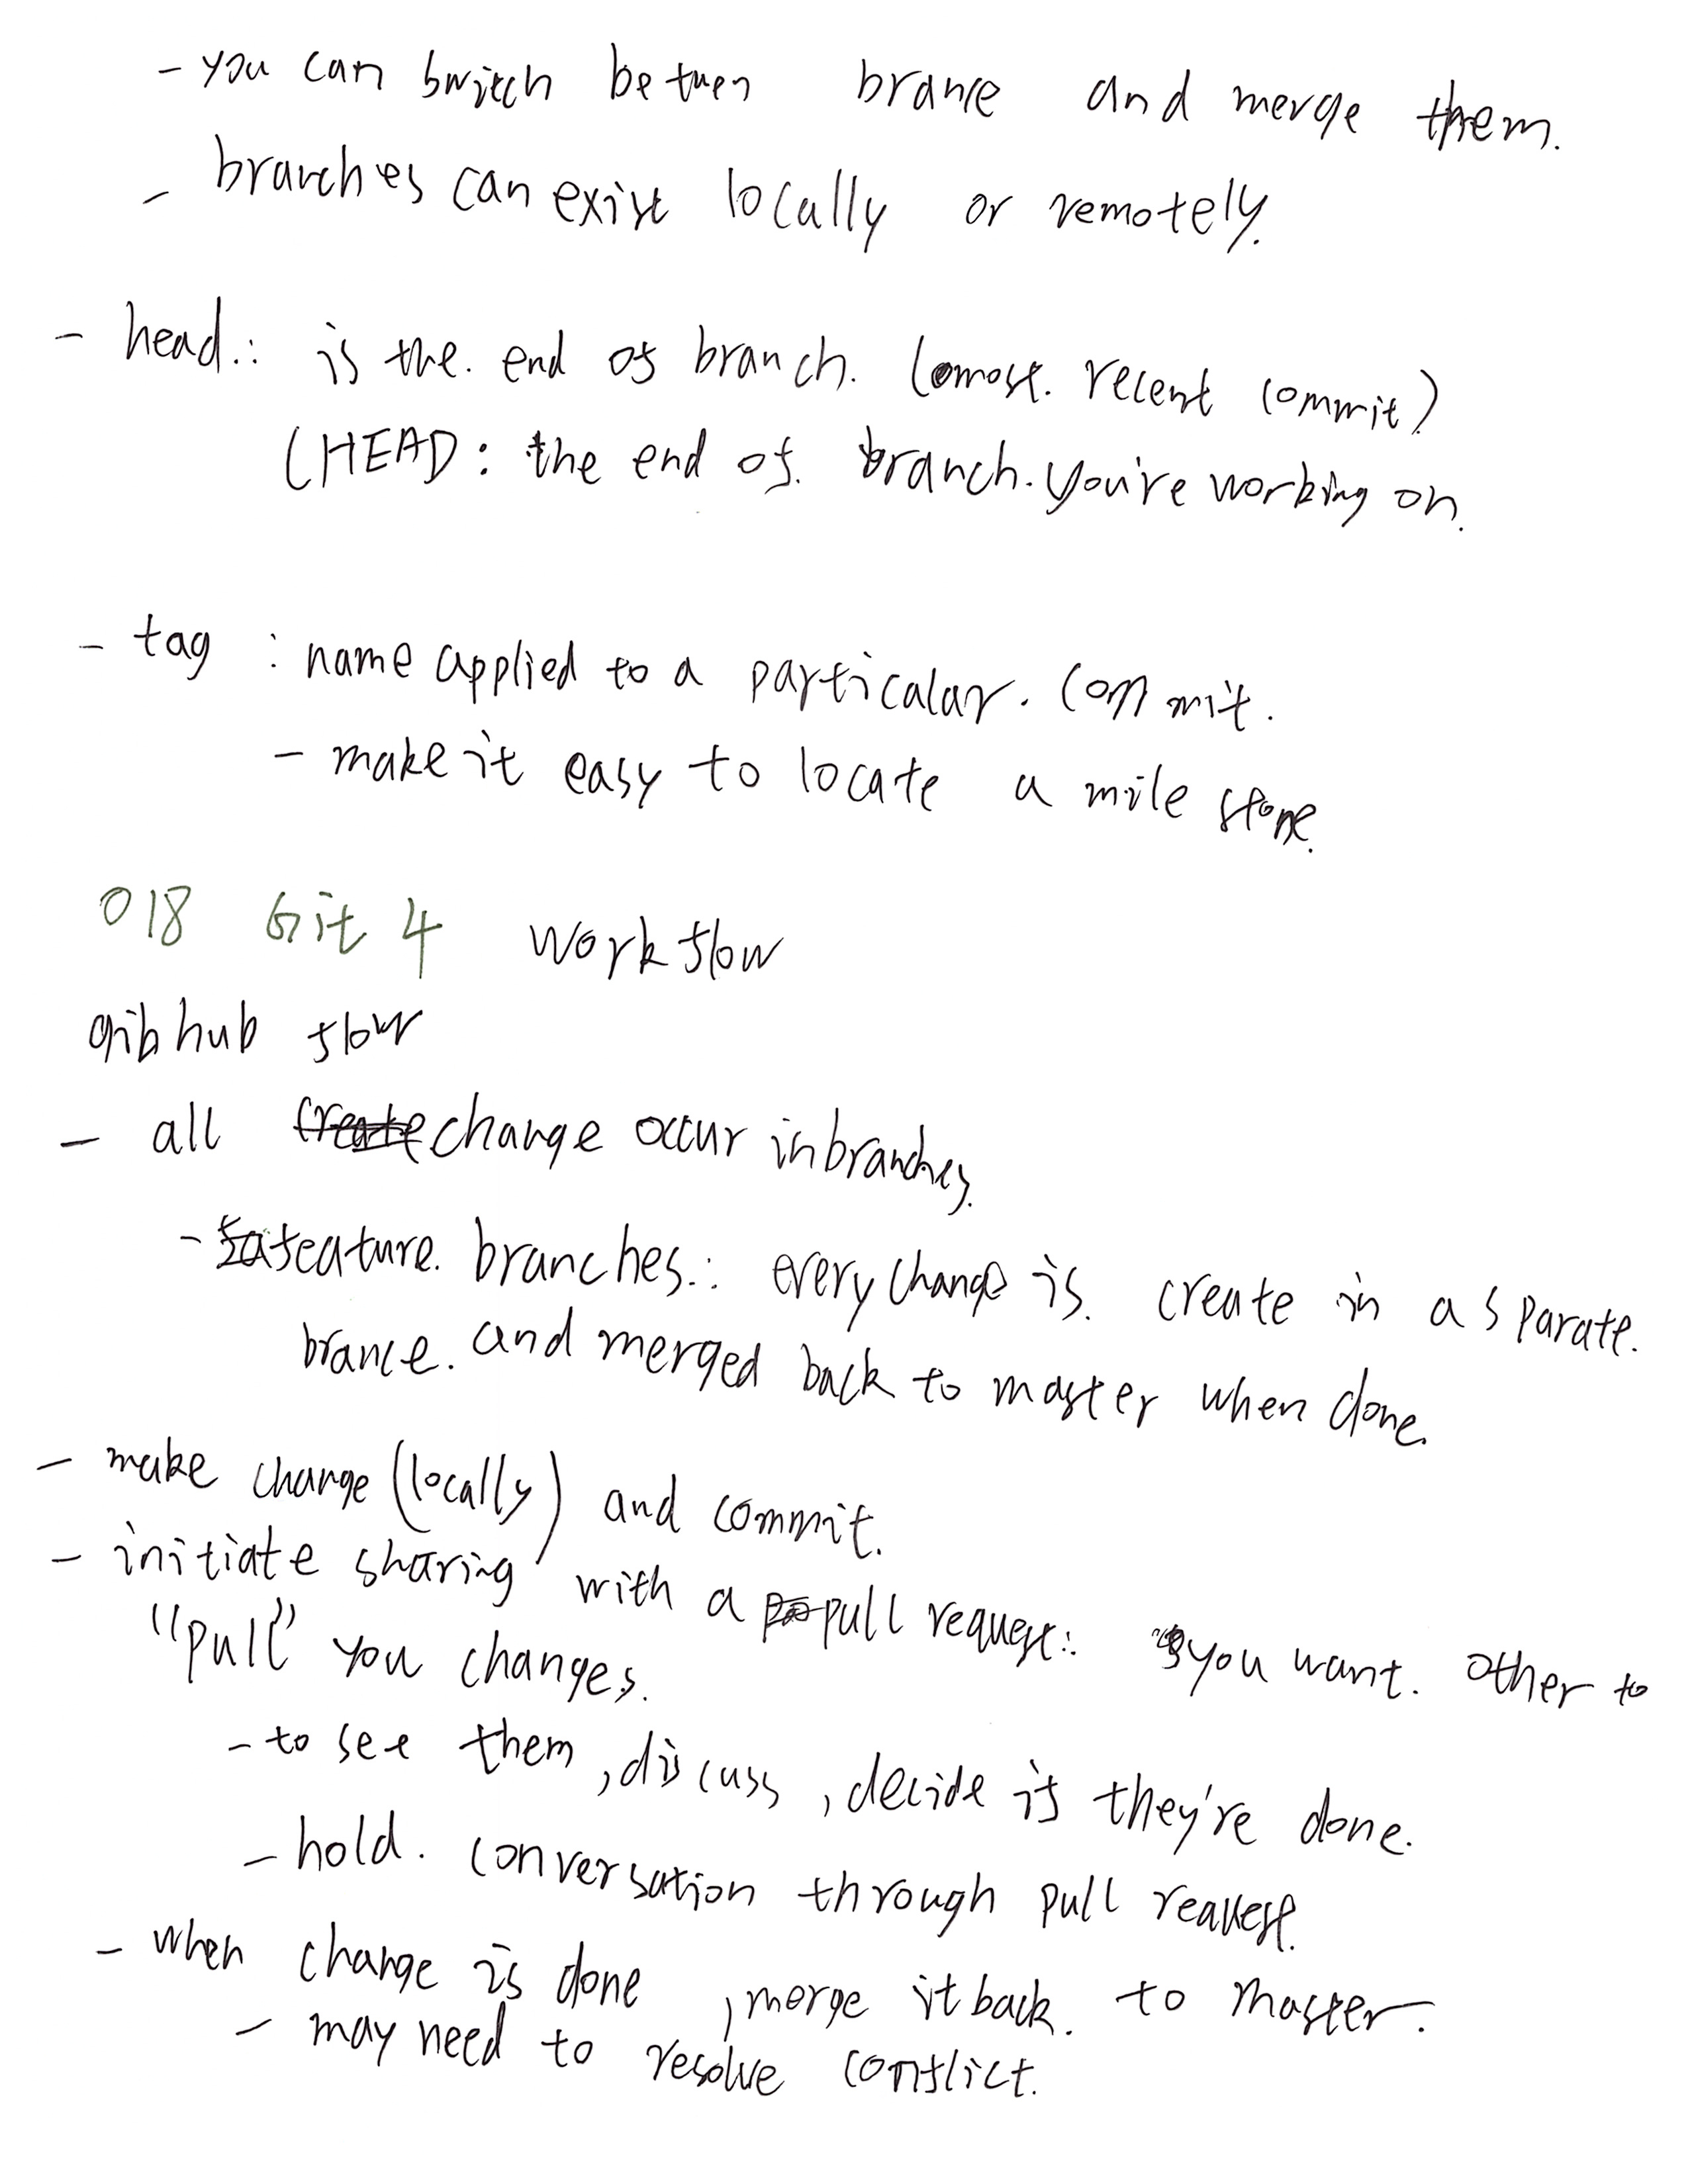 - you can switch betwen brance and merge them.
- branches can exist locally or remotely.
- head: is the end of branch. (most recent commit)
(HEAD: the end of branch. you're working on.
- tag : name applied to a particalar. commit.
- make it easy to locate a mile stone.
018 Git 4 workflow
gibhub flow
- all create change occur in branches.
- feature branches: every change is create in a sparate.
brance. and merged back to master when done.
- make change (locally) and commit.
- initiate sharing with a pull request: you want. other to
"pull" you changes.
- to see them, discuss, decide if they're done.
- hold. conversation through pull request.
- when change is done, merge it back. to master.
- may need to resolve conflict.